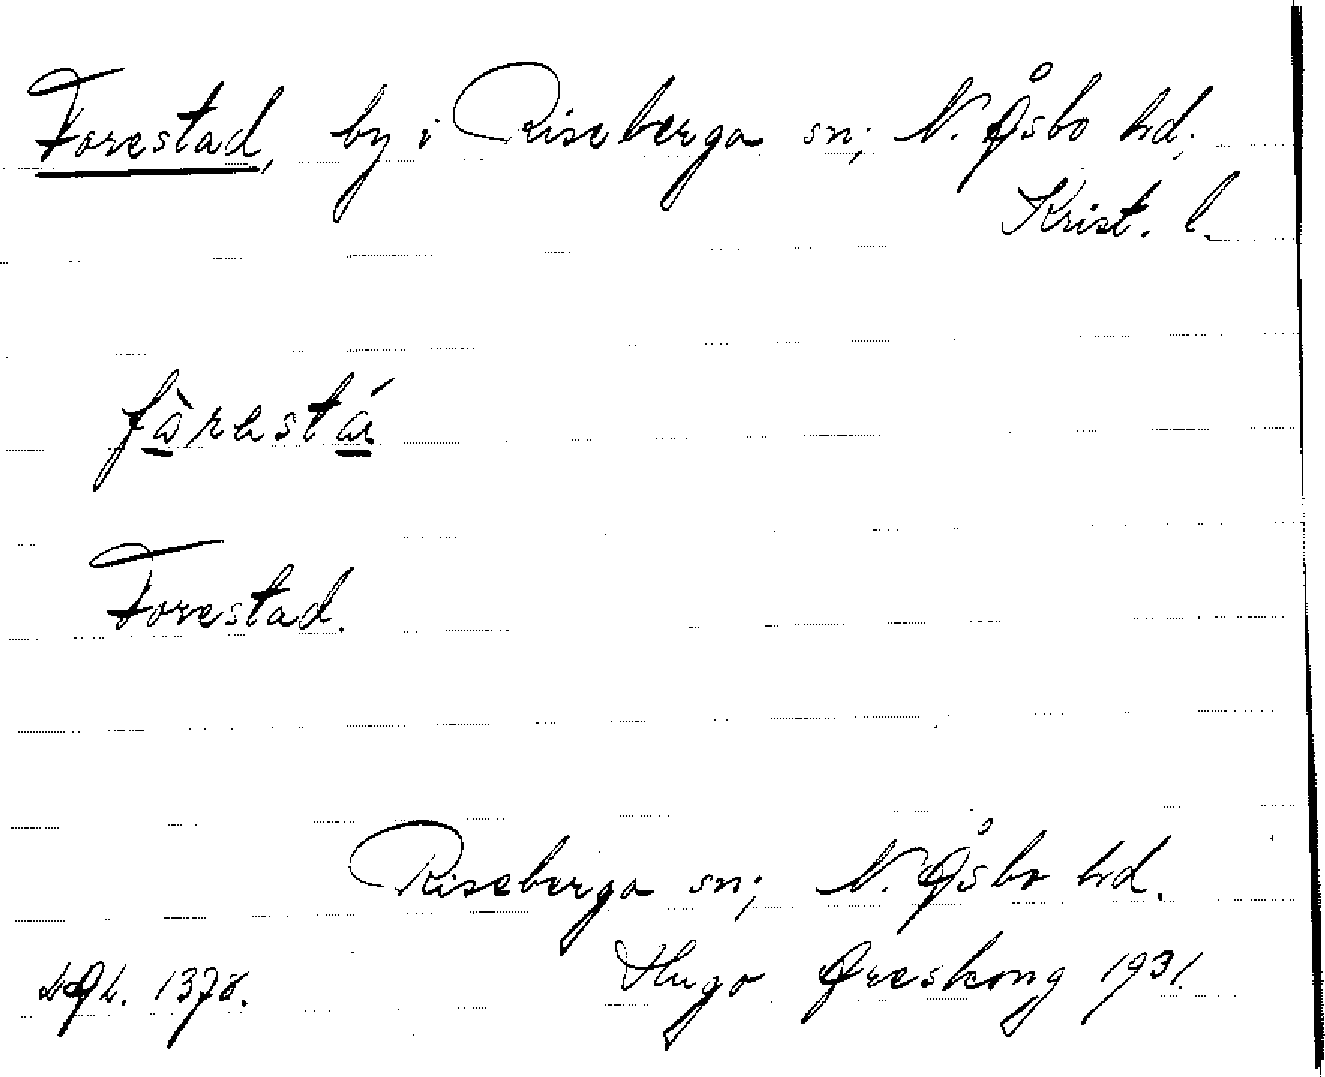 Forestad, by i Riseberga sn; N. Åsbo hd;
Krist. l.
Forestad.
Riseberga sn; N. Åsbo hd.
Hugo Areskoug 1931.